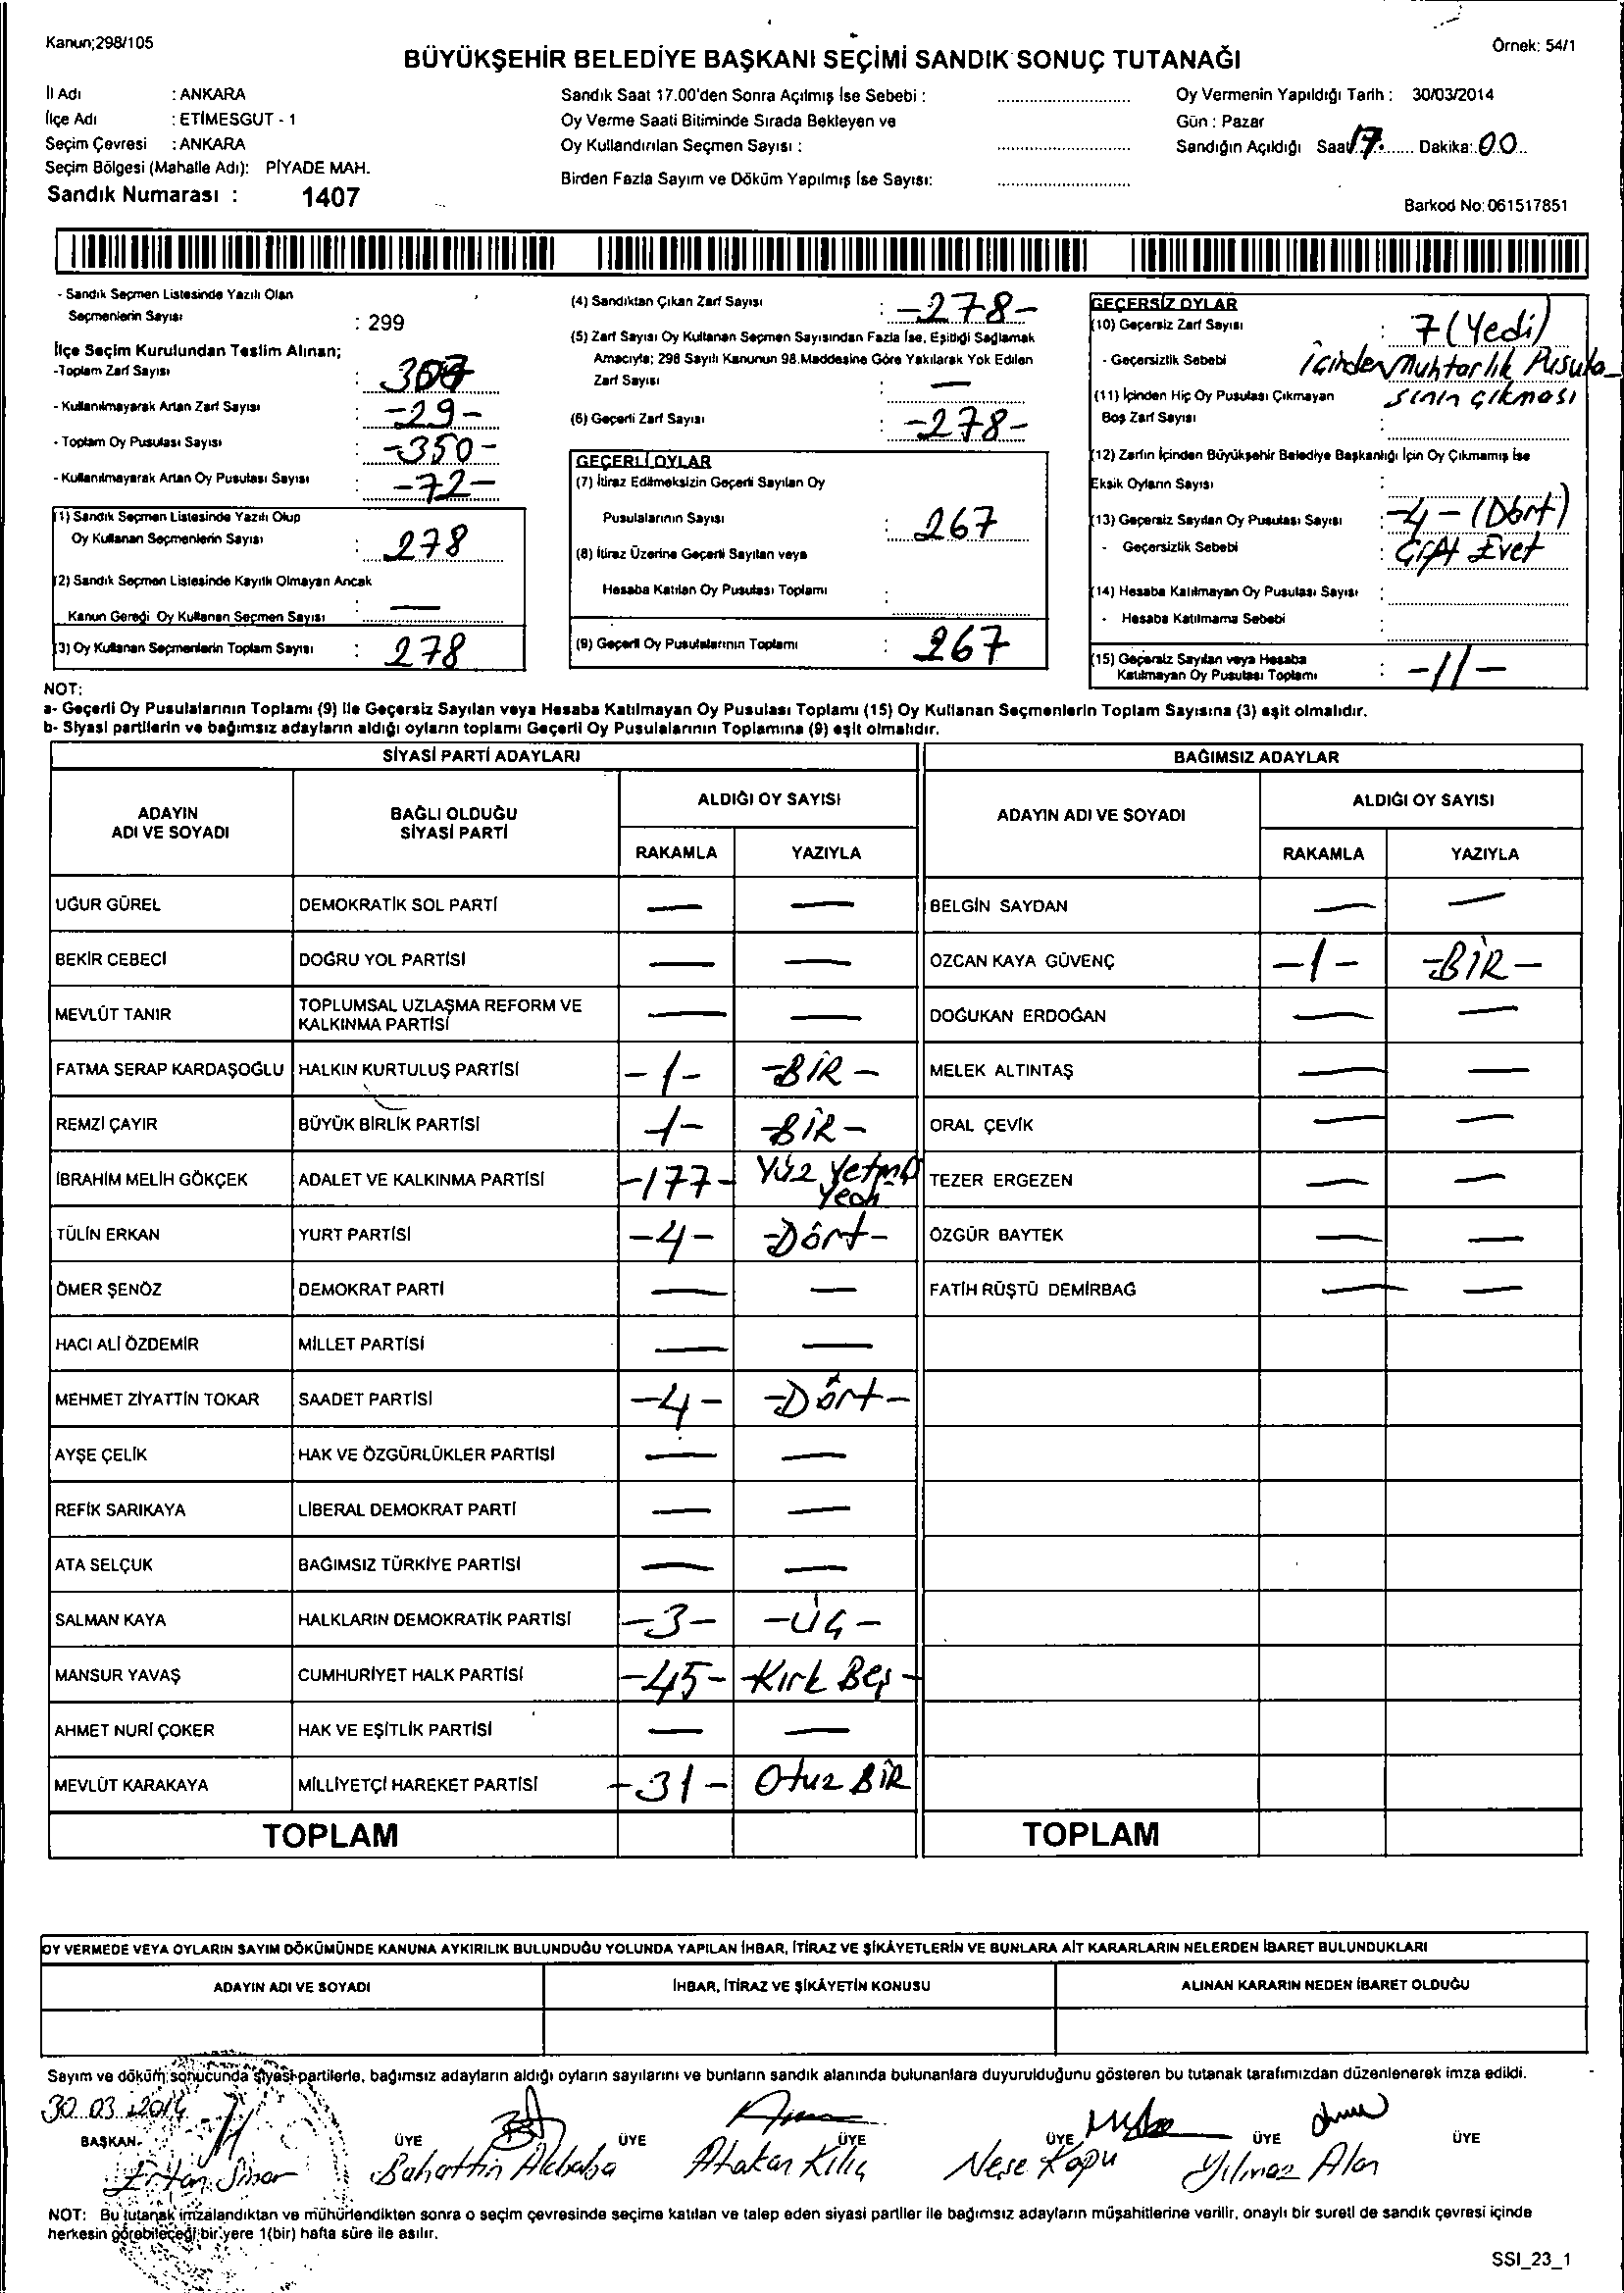 Kanun;298/105
Örnek: 54/1
BÜYÜKŞEHİR BELEDİYE BAŞKANI SEÇİMİ SANDIK SONUÇ TUTANAĞI
İl Adı : ANKARA
İlçe Adı : ETİMESGUT - 1
Seçim Çevresi : ANKARA
Seçim Bölgesi (Mahalle Adı): PİYADE MAH.
Sandık Numarası : 1407
Sandık Saat 17.00'den Sonra Açılmış İse Sebebi :
Oy Verme Saati Bitiminde Sırada Bekleyen ve
Oy Kullandırılan Seçmen Sayısı :
Birden Fazla Sayım ve Döküm Yapılmış İse Sayısı:
Oy Vermenin Yapıldığı Tarih : 30/03/2014
Gün : Pazar
Sandığın Açıldığı Saat 17 Dakika: 00
Barkod No: 061517851
- Sandık Seçmen Listesinde Yazılı Olan
Seçmenlerin Sayısı : 299
İlçe Seçim Kurulundan Teslim Alınan;
-Toplam Zarf Sayısı :
- Kullanılmayarak Artan Zarf Sayısı : -29-
- Toplam Oy Pusulası Sayısı : -350-
- Kullanılmayarak Artan Oy Pusulası Sayısı : -72-
(1) Sandık Seçmen Listesinde Yazılı Olup
Oy Kullanan Seçmenlerin Sayısı : 278
(2) Sandık Seçmen Listesinde Kayıtlı Olmayan Ancak
Kanun Gereği Oy Kullanan Seçmen Sayısı : —
(3) Oy Kullanan Seçmenlerin Toplam Sayısı : 278
(4) Sandıktan Çıkan Zarf Sayısı : -278-
(5) Zarf Sayısı Oy Kullanan Seçmen Sayısından Fazla İse, Eşitliği Sağlamak
Amacıyla; 298 Sayılı Kanunun 98.Maddesine Göre Yakılarak Yok Edilen
Zarf Sayısı : —
(6) Geçerli Zarf Sayısı : -278-
GEÇERLİ OYLAR
(7) İtiraz Edilmeksizin Geçerli Sayılan Oy
Pusulalarının Sayısı : 267
(8) İtiraz Üzerine Geçerli Sayılan veya
Hesaba Katılan Oy Pusulası Toplamı :
(9) Geçerli Oy Pusulalarının Toplamı : 267
GEÇERSİZ OYLAR
(10) Geçersiz Zarf Sayısı : 7 (Yedi)
- Geçersizlik Sebebi içinden Muhtarlık Pusula-
sının çıkması
(11) İçinden Hiç Oy Pusulası Çıkmayan
Boş Zarf Sayısı :
(12) Zarfın İçinden Büyükşehir Belediye Başkanlığı İçin Oy Çıkmamış İse
Eksik Oyların Sayısı :
(13) Geçersiz Sayılan Oy Pusulası Sayısı : -4- (Dört)
- Geçersizlik Sebebi : Çift Evet
(14) Hesaba Katılmayan Oy Pusulası Sayısı :
- Hesaba Katılmama Sebebi :
(15) Geçersiz Sayılan veya Hesaba
Katılmayan Oy Pusulası Toplamı : -11-
NOT:
a- Geçerli Oy Pusulalarının Toplamı (9) ile Geçersiz Sayılan veya Hesaba Katılmayan Oy Pusulası Toplamı (15) Oy Kullanan Seçmenlerin Toplam Sayısına (3) eşit olmalıdır.
b- Siyasi partilerin ve bağımsız adayların aldığı oyların toplamı Geçerli Oy Pusulalarının Toplamına (9) eşit olmalıdır.
SİYASİ PARTİ ADAYLARI
BAĞIMSIZ ADAYLAR
ADAYIN ADI VE SOYADI
BAĞLI OLDUĞU SİYASİ PARTİ
ALDIĞI OY SAYISI
RAKAMLA YAZIYLA
ADAYIN ADI VE SOYADI
ALDIĞI OY SAYISI
RAKAMLA YAZIYLA
UĞUR GÜREL DEMOKRATİK SOL PARTİ — — BELGİN SAYDAN — —
BEKİR CEBECİ DOĞRU YOL PARTİSİ — — ÖZCAN KAYA GÜVENÇ -1- -BİR-
MEVLÜT TANIR TOPLUMSAL UZLAŞMA REFORM VE KALKINMA PARTİSİ — — DOĞUKAN ERDOĞAN — —
FATMA SERAP KARDAŞOĞLU HALKIN KURTULUŞ PARTİSİ -1- -BİR- MELEK ALTINTAŞ — —
REMZİ ÇAYIR BÜYÜK BİRLİK PARTİSİ -1- -BİR- ORAL ÇEVİK — —
İBRAHİM MELİH GÖKÇEK ADALET VE KALKINMA PARTİSİ -177- Yüz Yetmiş Yedi TEZER ERGEZEN — —
TÜLİN ERKAN YURT PARTİSİ -4- -Dört- ÖZGÜR BAYTEK — —
ÖMER ŞENÖZ DEMOKRAT PARTİ — — FATİH RÜŞTÜ DEMİRBAĞ — —
HACI ALİ ÖZDEMİR MİLLET PARTİSİ — —
MEHMET ZİYATTİN TOKAR SAADET PARTİSİ -4- -Dört-
AYŞE ÇELİK HAK VE ÖZGÜRLÜKLER PARTİSİ — —
REFİK SARIKAYA LİBERAL DEMOKRAT PARTİ — —
ATA SELÇUK BAĞIMSIZ TÜRKİYE PARTİSİ — —
SALMAN KAYA HALKLARIN DEMOKRATİK PARTİSİ -3- -Üç-
MANSUR YAVAŞ CUMHURİYET HALK PARTİSİ -45- -Kırk Beş-
AHMET NURİ ÇOKER HAK VE EŞİTLİK PARTİSİ — —
MEVLÜT KARAKAYA MİLLİYETÇİ HAREKET PARTİSİ -31- Otuz BİR
TOPLAM TOPLAM
OY VERMEDE VEYA OYLARIN SAYIM DÖKÜMÜNDE KANUNA AYKIRILIK BULUNDUĞU YOLUNDA YAPILAN İHBAR, İTİRAZ VE ŞİKÂYETLERİN VE BUNLARA AİT KARARLARIN NELERDEN İBARET BULUNDUKLARI
ADAYIN ADI VE SOYADI İHBAR, İTİRAZ VE ŞİKÂYETİN KONUSU ALINAN KARARIN NEDEN İBARET OLDUĞU
Sayım ve döküm sonucunda siyasi partilerle, bağımsız adayların aldığı oyların sayılarını ve bunların sandık alanında bulunanlara duyurulduğunu gösteren bu tutanak tarafımızdan düzenlenerek imza edildi.
30.03.2014
BAŞKAN ÜYE ÜYE ÜYE ÜYE ÜYE ÜYE
Ertan Bahattin Akbaba Atakan Kılıç Neşe Kapu Yılmaz Alan
NOT: Bu tutanak imzalandıktan ve mühürlendikten sonra o seçim çevresinde seçime katılan ve talep eden siyasi partiler ile bağımsız adayların müşahitlerine verilir, onaylı bir sureti de sandık çevresi içinde
herkesin görebileceği bir yere 1(bir) hafta süre ile asılır.
SSI_23_1